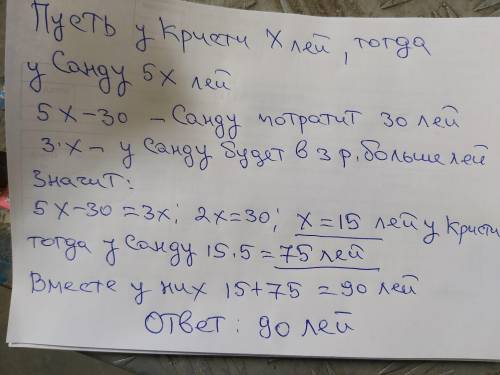 Пусть у Кристи х лей, тогда
у Санду 5х лей
5х-30 - Санду потратит 30 лей
3·х - у Санду будет в 3 р. больше лей
Значит:
5х-30=3х; 2х=30; х=15 лей у Кристи
тогда у Санду 15·5=75 лей
Вместе у них 15+75=90 лей
Ответ: 90 лей